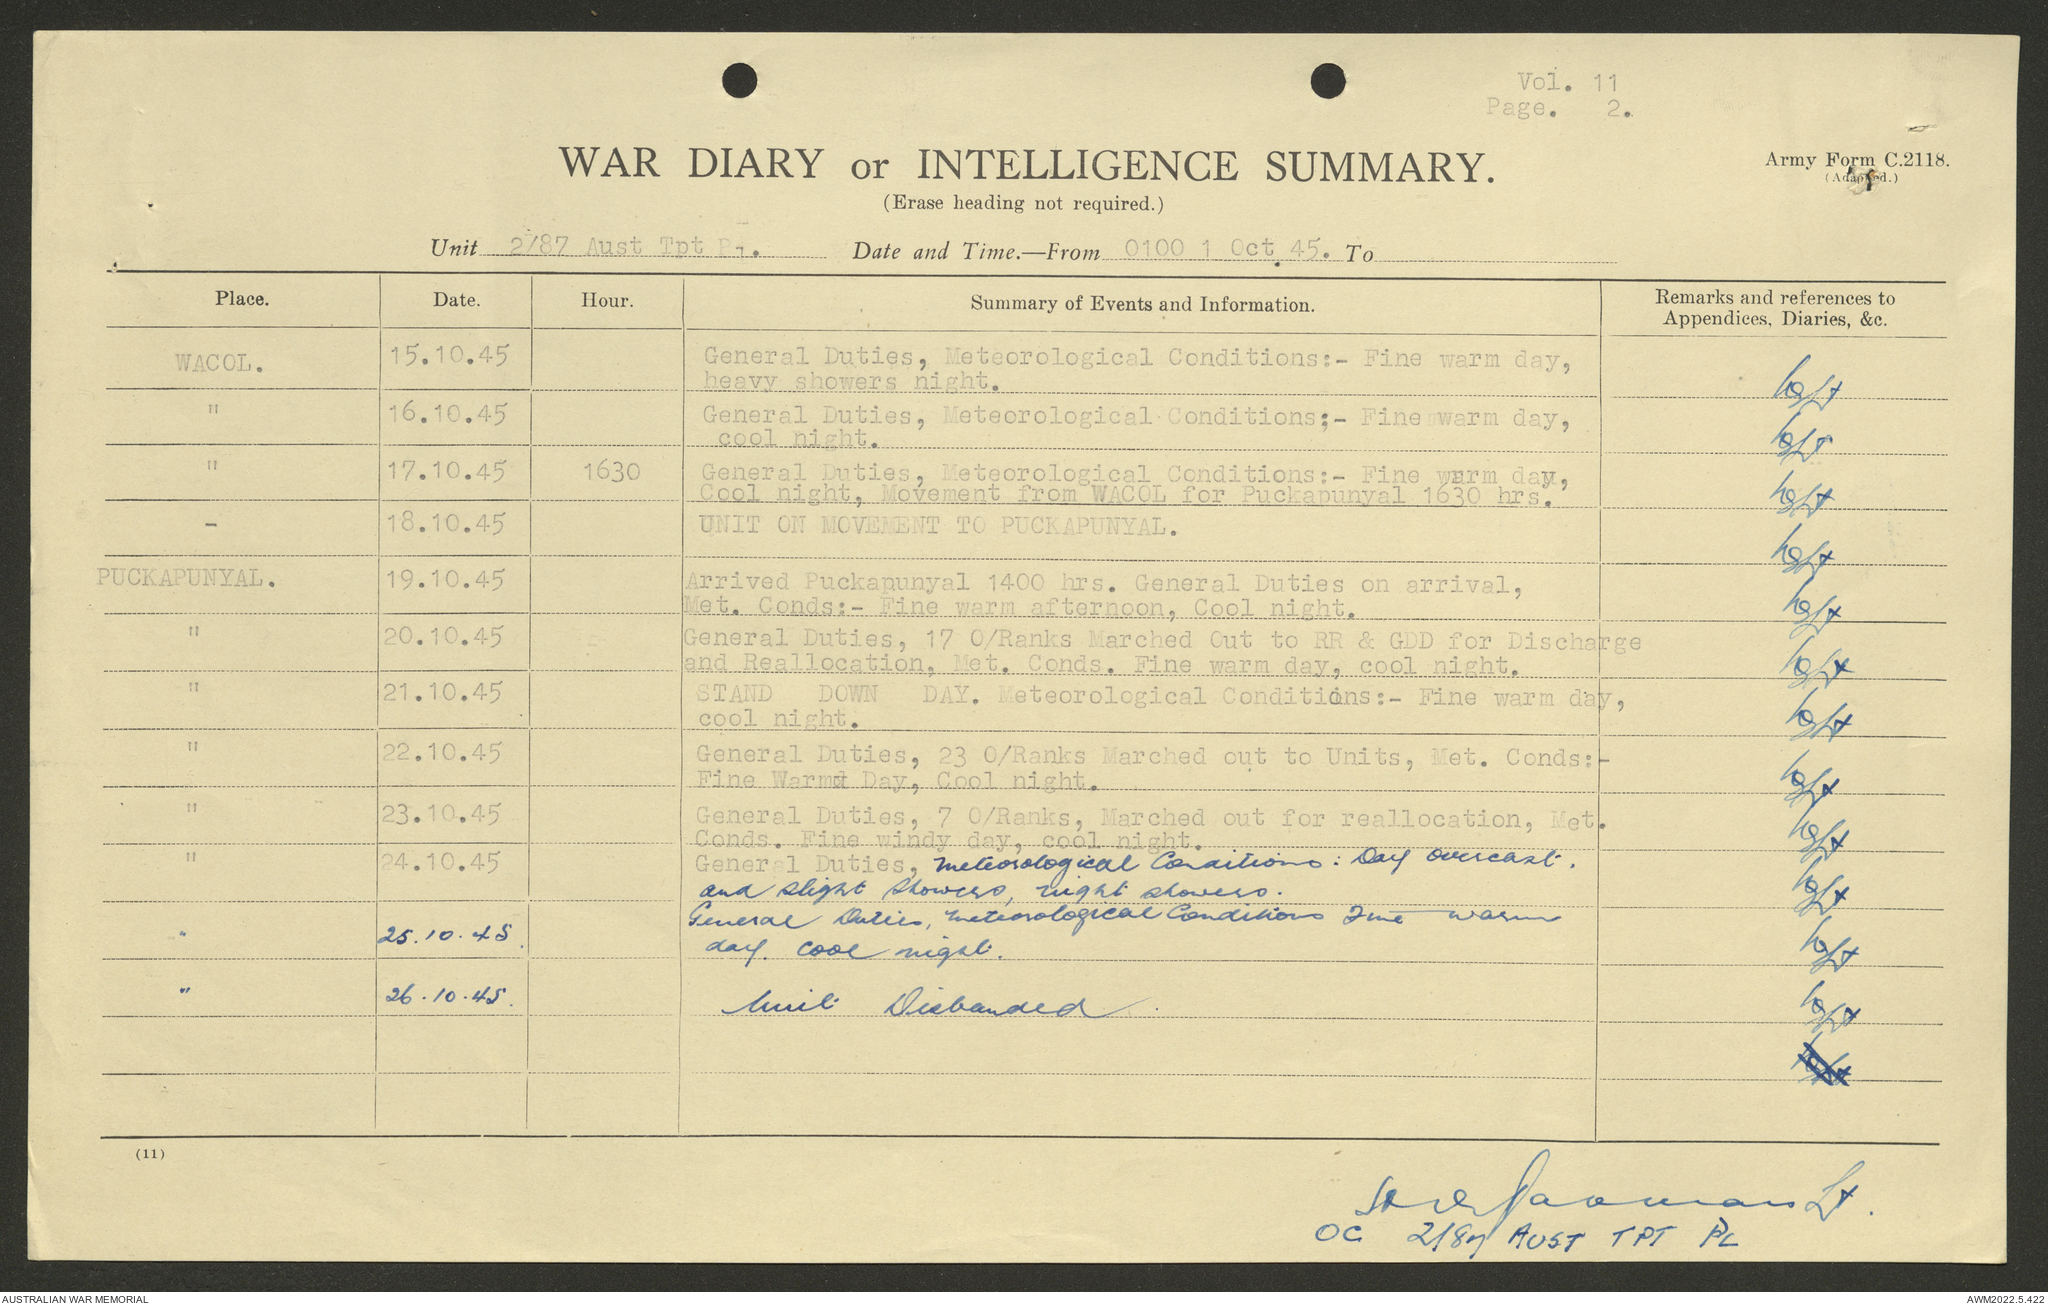 Vol. 11
Page. 2.
WAR DIARY or INTELLIGENCE SUMMARY.
Army Form C.2118.
(Adapted.)
(Erase heading not required.)
Unit 2/87 Aust Tpt Pl. Date and Time.—From 0100 1 Oct 45. To
Place. Date. Hour. Summary of Events and Information. Remarks and references to
Appendices, Diaries, &c.
WACOL. 15.10.45 General Duties, Meteorological Conditions:- Fine warm day,
heavy showers night.
" 16.10.45 General Duties, Meteorological Conditions;- Fine warm day,
cool night.
" 17.10.45 1630 General Duties, Meteorological Conditions:- Fine warm day,
Cool night, Movement from WACOL for Puckapunyal 1630 hrs.
- 18.10.45 UNIT ON MOVEMENT TO PUCKAPUNYAL.
PUCKAPUNYAL. 19.10.45 Arrived Puckapunyal 1400 hrs. General Duties on arrival,
Met. Conds:- Fine warm afternoon, Cool night.
" 20.10.45 General Duties, 17 O/Ranks Marched Out to RR & GDD for Discharge
and Reallocation, Met. Conds. Fine warm day, cool night.
" 21.10.45 STAND DOWN DAY. Meteorological Conditions:- Fine warm day,
cool night.
" 22.10.45 General Duties, 23 O/Ranks Marched out to Units, Met. Conds:-
Fine Warm Day, Cool night.
" 23.10.45 General Duties, 7 O/Ranks, Marched out for reallocation, Met.
Conds. Fine windy day, cool night.
" 24.10.45 General Duties, Meteorological Conditions: Day overcast.
and slight showers, night showers.
" 25.10.45. General Duties, Meteorological Conditions Fine warm
day. Cool night.
" 26.10.45. Unit Disbanded.
(11)
Lt.
OC 2/87 AUST TPT PL
AUSTRALIAN WAR MEMORIAL
AWM2022.5.422